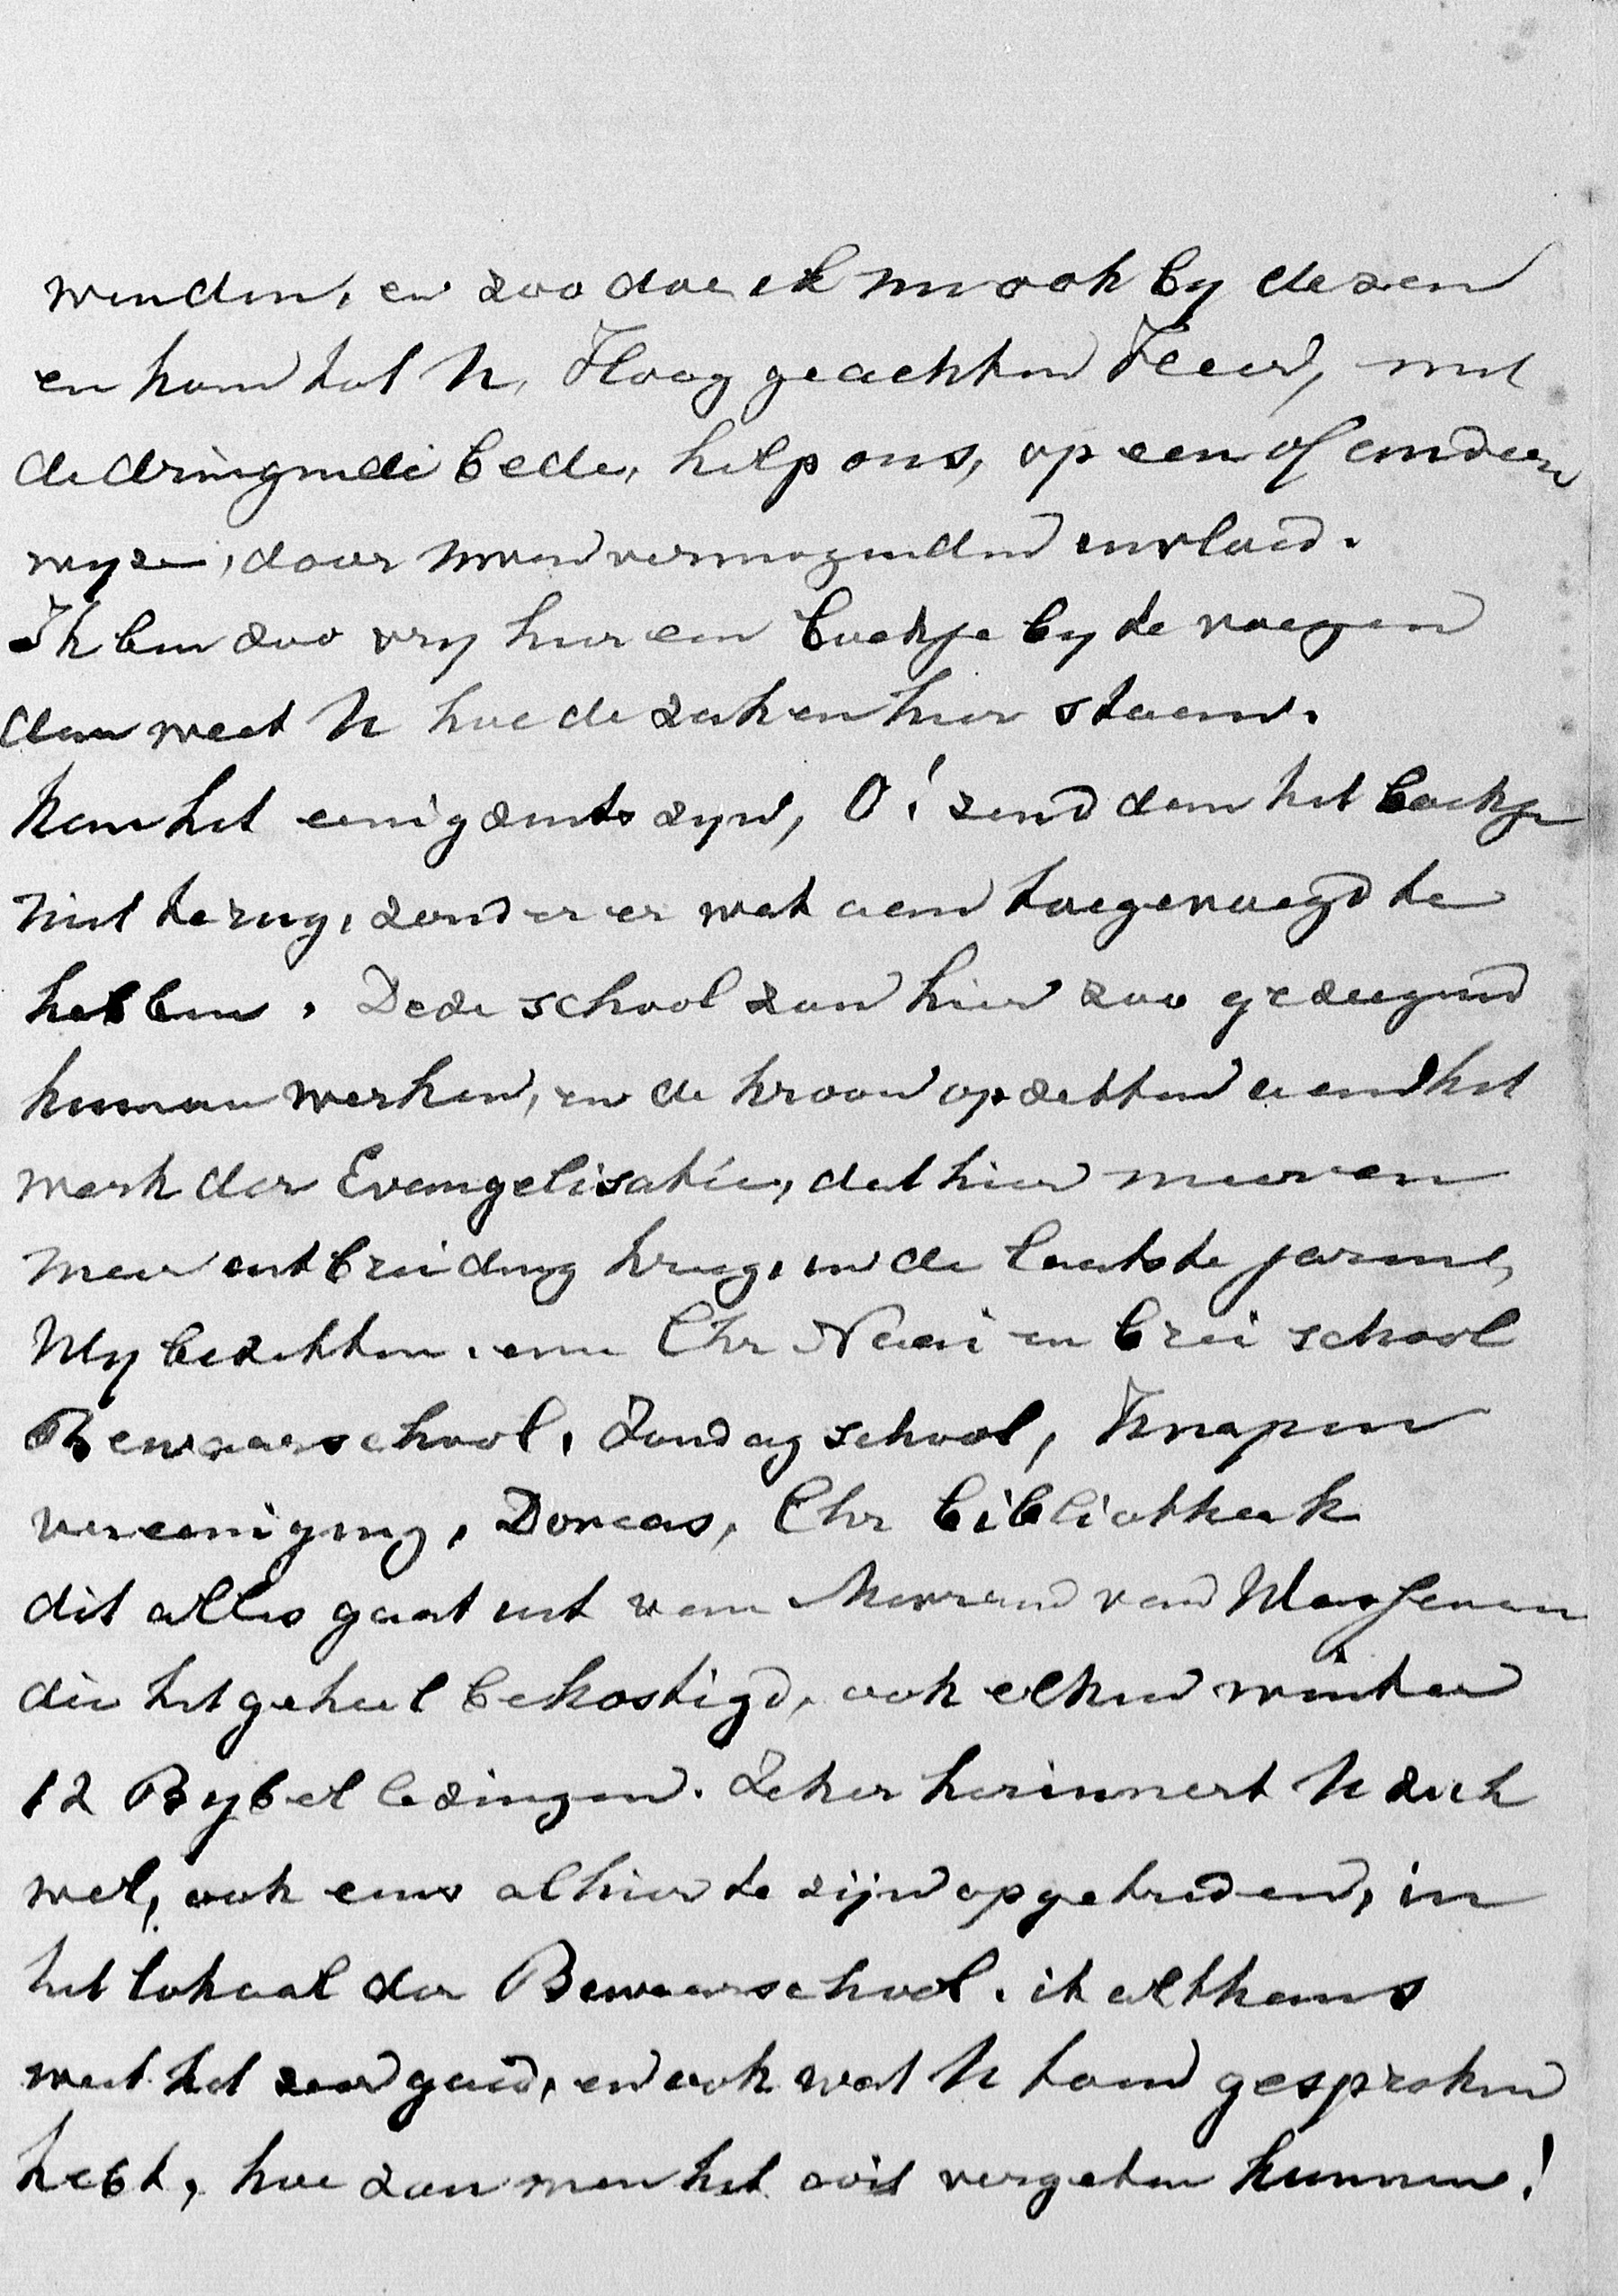 wenden, en zoo doe ik nu ook by dezen
en kom tot U, Hoog geachten Heer, met
de dringende bede, help ons, op een of andere
wyze, door Uwen vermogenden invloed.
Ik ben zoo vry hier een boekje by te voegen
dan weet U hoe de zaken hier staan.
Kan het eenigzints zyn, O! zend dan het boekje
niet terug, zonder er wat aan toegevoegd te
hebben. Deze school zou hier zoo gezegend
kunnen werken, en de kroon opzetten aan het
werk der Evangelisatie, dat hier meer en
meer uitbreiding kreeg, in de laatste jaren,
Wy bezitten een Chr Naai en brei school
Bewaarschool, Zondagschool, Knapen
vereeniging, Dorcas, Chr bibliotheek
dit alles gaat uit van Mevrouw van
die het geheel bekostigd, ook elken winter
12 Bybel lezingen. Zeker herinnert U zich
wel, ook eens alhier te zijn opgetreden, in
het lokaal der Bewaarschool. ik althans
weet het zeer goed, en ook wat U toen gesproken
hebt, hoe zou men het ooit vergeten kunnen!